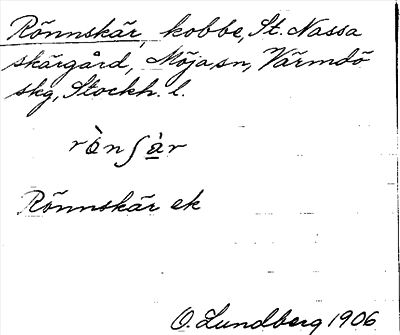 Rönnskär, kobbe, St. Nassa
skärgård, Möja sn, Värmdö
skg, Stockh. l.
rὰnʃὰ̱r
Rönnskär ek
O. Lundberg 1906